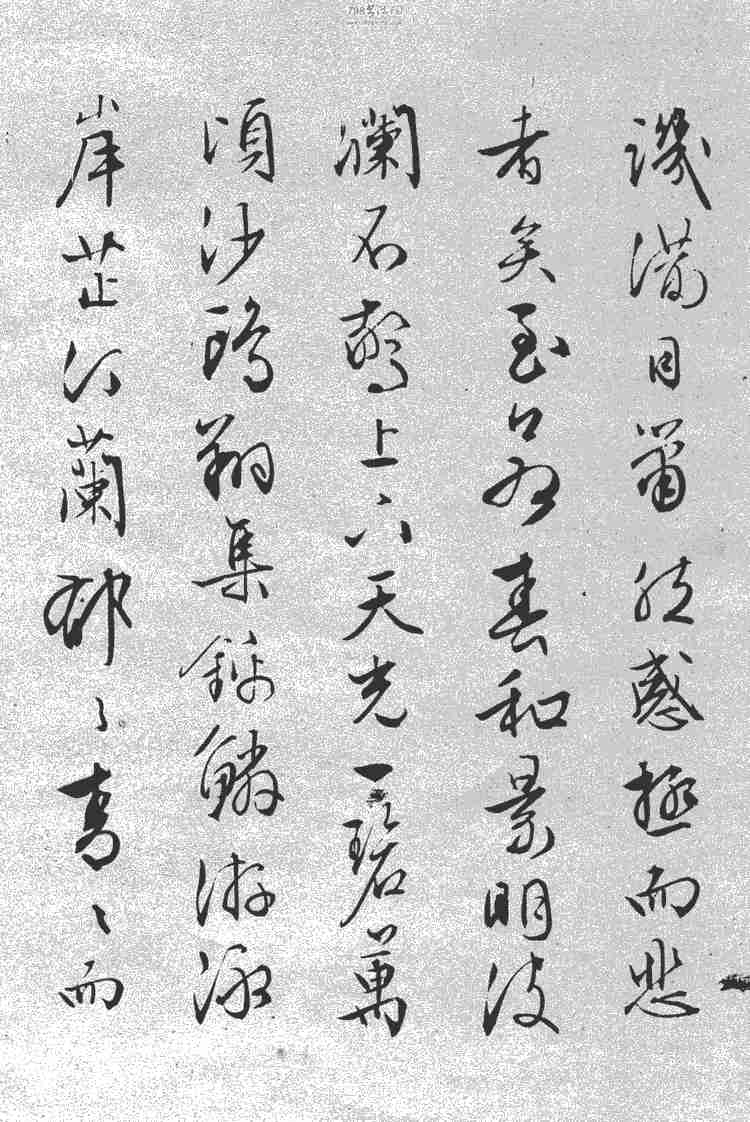 譏滿目蕭然感極而悲
者矣至若春和景明波
瀾不驚上下天光一碧萬
頃沙鷗翔集錦鱗游泳
岸芷汀蘭郁〻青〻而